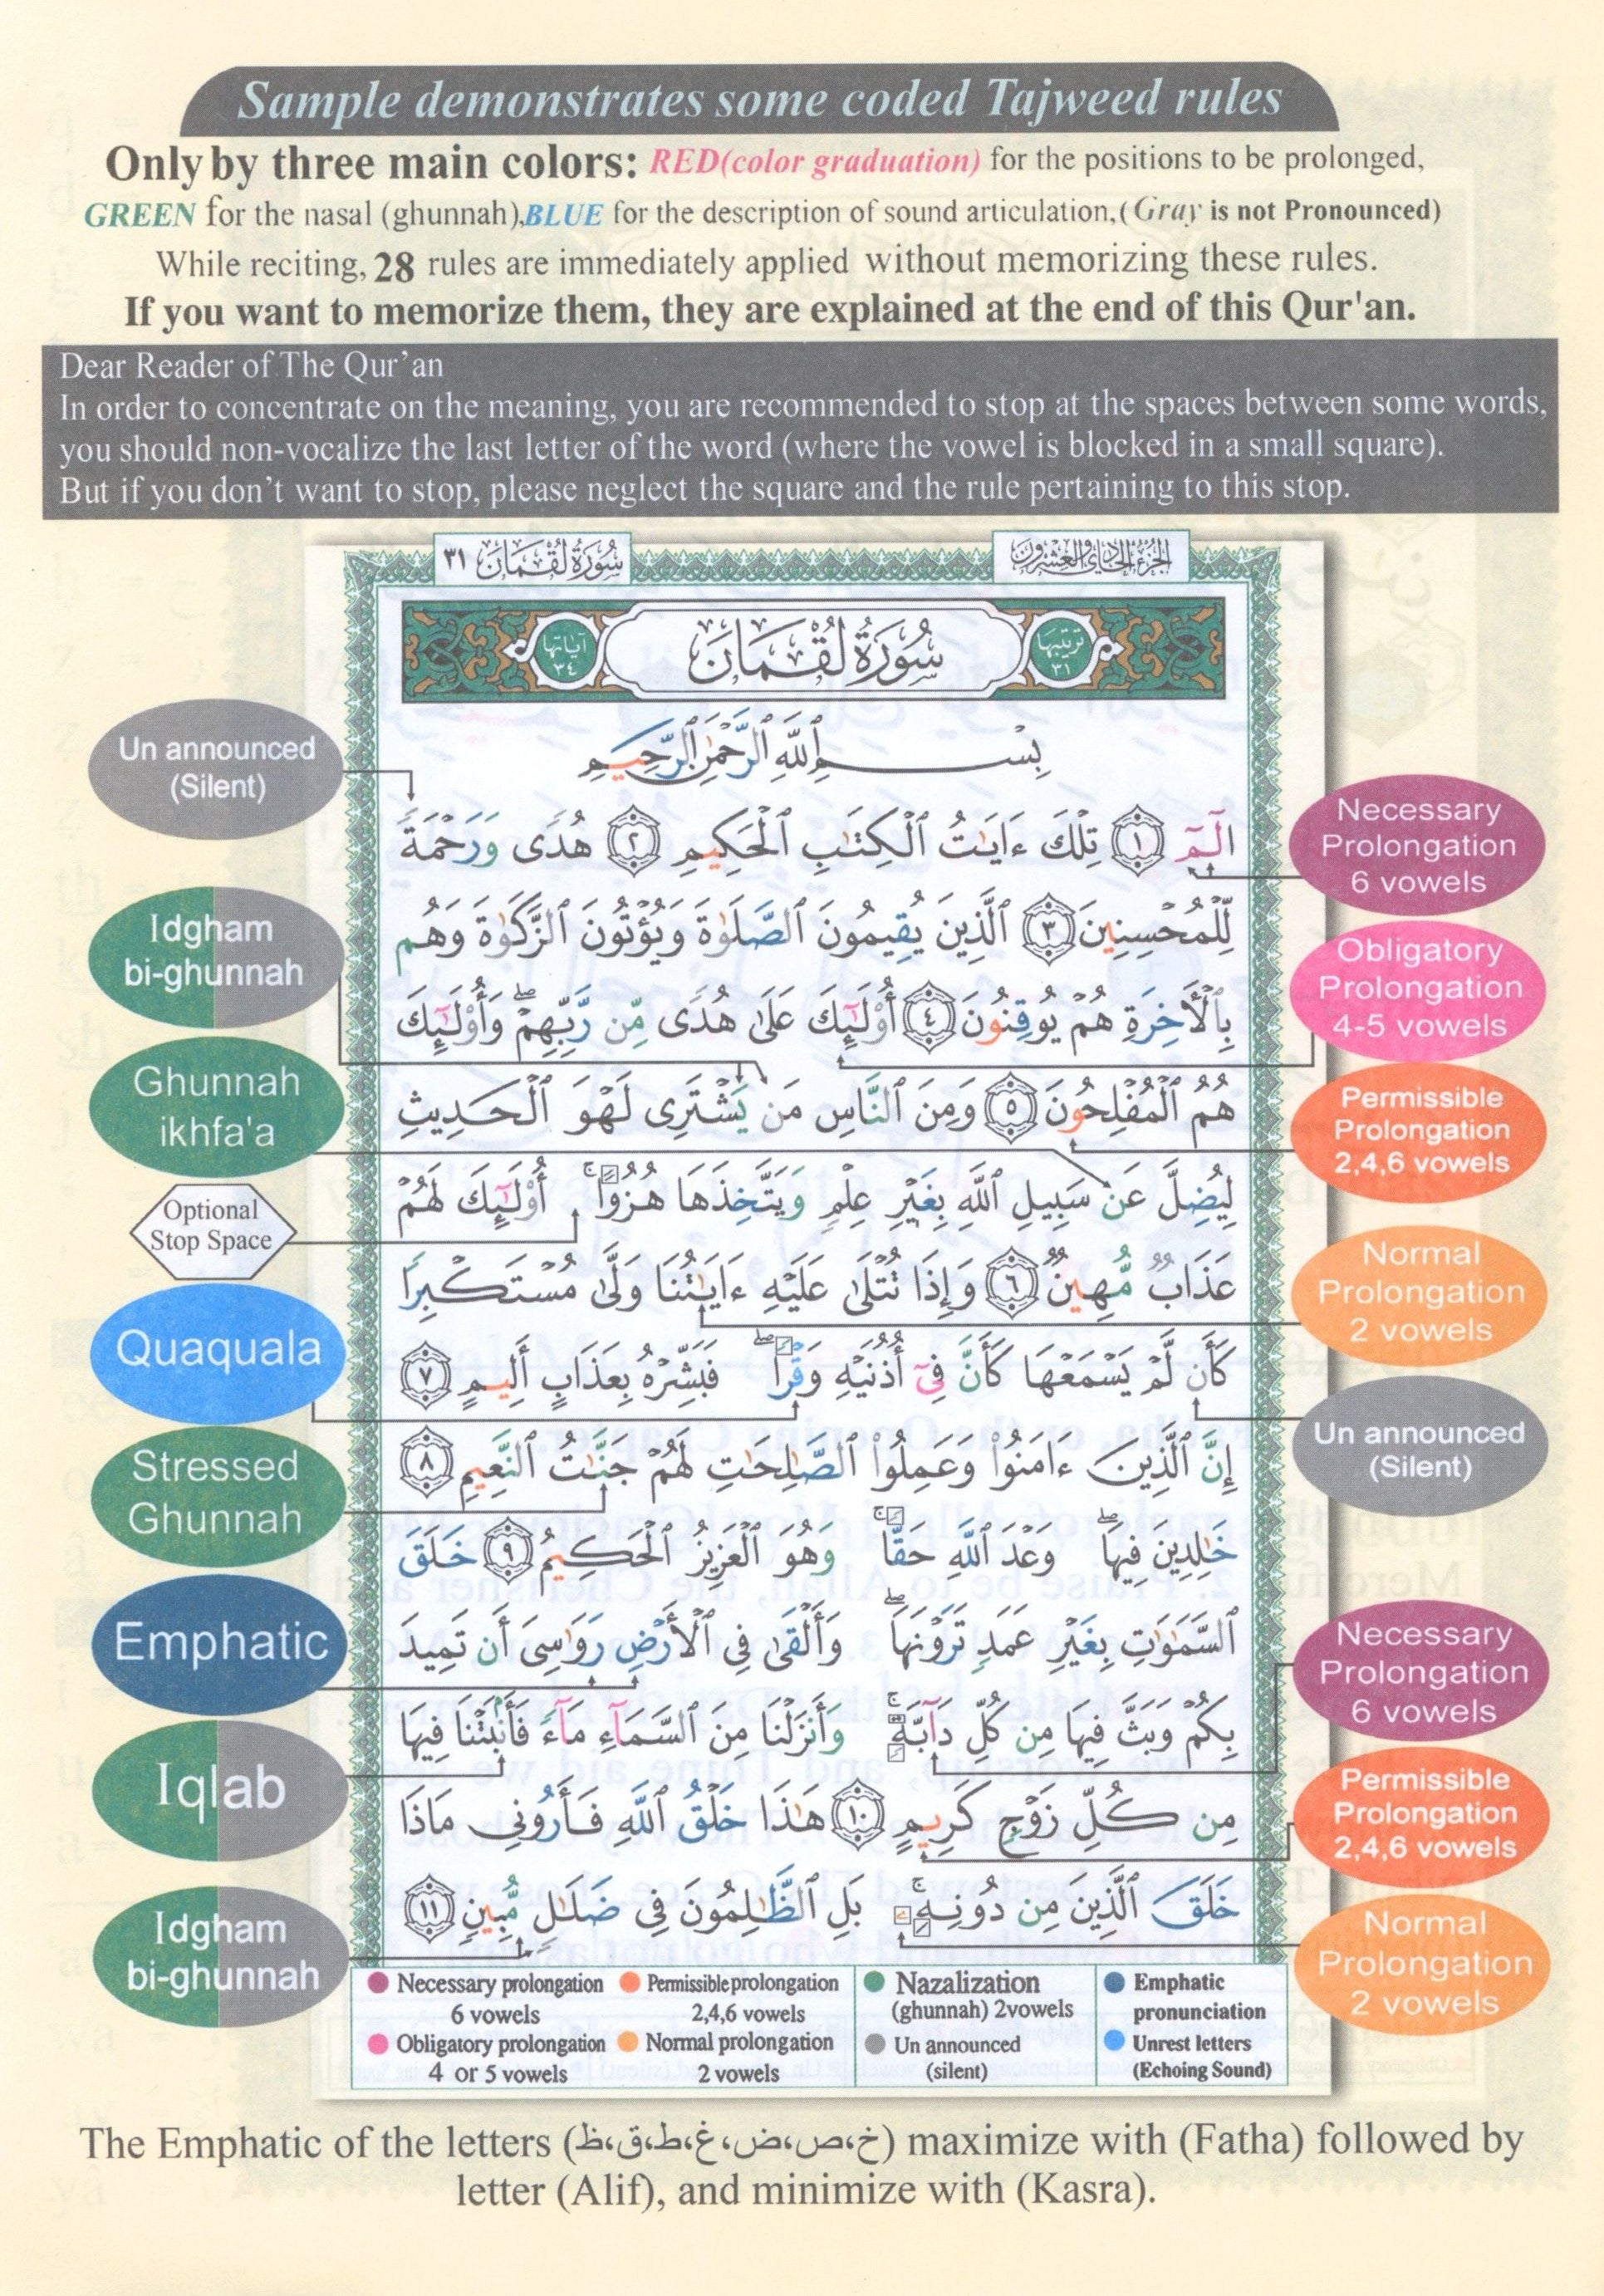 Sample demonstrates some coded Tajweed rules
Only by three main colors: RED(color graduation) for the positions to be prolonged,
GREEN for the nasal (ghunnah),BLUE for the description of sound articulation,(Gray is not Pronounced)
While reciting, 28 rules are immediately applied without memorizing these rules.
If you want to memorize them, they are explained at the end of this Qur'an.
Dear Reader of The Qur'an
In order to concentrate on the meaning, you are recommended to stop at the spaces between some words,
you should non-vocalize the last letter of the word (where the vowel is blocked in a small square).
But if you don't want to stop, please neglect the square and the rule pertaining to this stop.
الجزء الحادي والعشرون
سُورَةُ لُقْمَان ٣١
ترتيبها ٣١
سُورَةُ لُقْمَان
آياتها ٣٤
بِسْمِ ٱللَّهِ ٱلرَّحْمَٰنِ ٱلرَّحِيمِ
الٓمٓ ١ تِلْكَ ءَايَٰتُ ٱلْكِتَٰبِ ٱلْحَكِيمِ ٢ هُدًى وَرَحْمَةً
لِّلْمُحْسِنِينَ ٣ ٱلَّذِينَ يُقِيمُونَ ٱلصَّلَوٰةَ وَيُؤْتُونَ ٱلزَّكَوٰةَ وَهُم
بِٱلْأَخِرَةِ هُمْ يُوقِنُونَ ٤ أُو۟لَٰٓئِكَ عَلَىٰ هُدًى مِّن رَّبِّهِمْ ۖ وَأُو۟لَٰٓئِكَ
هُمُ ٱلْمُفْلِحُونَ ٥ وَمِنَ ٱلنَّاسِ مَن يَشْتَرِى لَهْوَ ٱلْحَدِيثِ
لِيُضِلَّ عَن سَبِيلِ ٱللَّهِ بِغَيْرِ عِلْمٍ وَيَتَّخِذَهَا هُزُوًا ۚ أُو۟لَٰٓئِكَ لَهُمْ
عَذَابٌ مُّهِينٌ ٦ وَإِذَا تُتْلَىٰ عَلَيْهِ ءَايَٰتُنَا وَلَّىٰ مُسْتَكْبِرًا
كَأَن لَّمْ يَسْمَعْهَا كَأَنَّ فِىٓ أُذُنَيْهِ وَقْرًا ۖ فَبَشِّرْهُ بِعَذَابٍ أَلِيمٍ ٧
إِنَّ ٱلَّذِينَ ءَامَنُوا۟ وَعَمِلُوا۟ ٱلصَّٰلِحَٰتِ لَهُمْ جَنَّٰتُ ٱلنَّعِيمِ ٨
خَٰلِدِينَ فِيهَا ۖ وَعْدَ ٱللَّهِ حَقًّا ۚ وَهُوَ ٱلْعَزِيزُ ٱلْحَكِيمُ ٩ خَلَقَ
ٱلسَّمَٰوَٰتِ بِغَيْرِ عَمَدٍ تَرَوْنَهَا ۖ وَأَلْقَىٰ فِى ٱلْأَرْضِ رَوَٰسِىَ أَن تَمِيدَ
بِكُمْ وَبَثَّ فِيهَا مِن كُلِّ دَآبَّةٍ ۚ وَأَنزَلْنَا مِنَ ٱلسَّمَآءِ مَآءً فَأَنۢبَتْنَا فِيهَا
مِن كُلِّ زَوْجٍ كَرِيمٍ ١٠ هَٰذَا خَلْقُ ٱللَّهِ فَأَرُونِى مَاذَا
خَلَقَ ٱلَّذِينَ مِن دُونِهِۦ ۚ بَلِ ٱلظَّٰلِمُونَ فِى ضَلَٰلٍ مُّبِينٍ ١١
Un announced
(Silent)
Idgham
bi-ghunnah
Ghunnah
ikhfa'a
Optional
Stop Space
Quaquala
Stressed
Ghunnah
Emphatic
Iqlab
Idgham
bi-ghunnah
Necessary
Prolongation
6 vowels
Obligatory
Prolongation
4-5 vowels
Permissible
Prolongation
2,4,6 vowels
Normal
Prolongation
2 vowels
Un announced
(Silent)
Necessary
Prolongation
6 vowels
Permissible
Prolongation
2,4,6 vowels
Normal
Prolongation
2 vowels
Necessary prolongation
6 vowels
Permissible prolongation
2,4,6 vowels
Nazalization
(ghunnah) 2vowels
Emphatic
pronunciation
Obligatory prolongation
4 or 5 vowels
Normal prolongation
2 vowels
Un announced
(silent)
Unrest letters
(Echoing Sound)
The Emphatic of the letters (خ،ص،ض،غ،ط،ق،ظ) maximize with (Fatha) followed by
letter (Alif), and minimize with (Kasra).